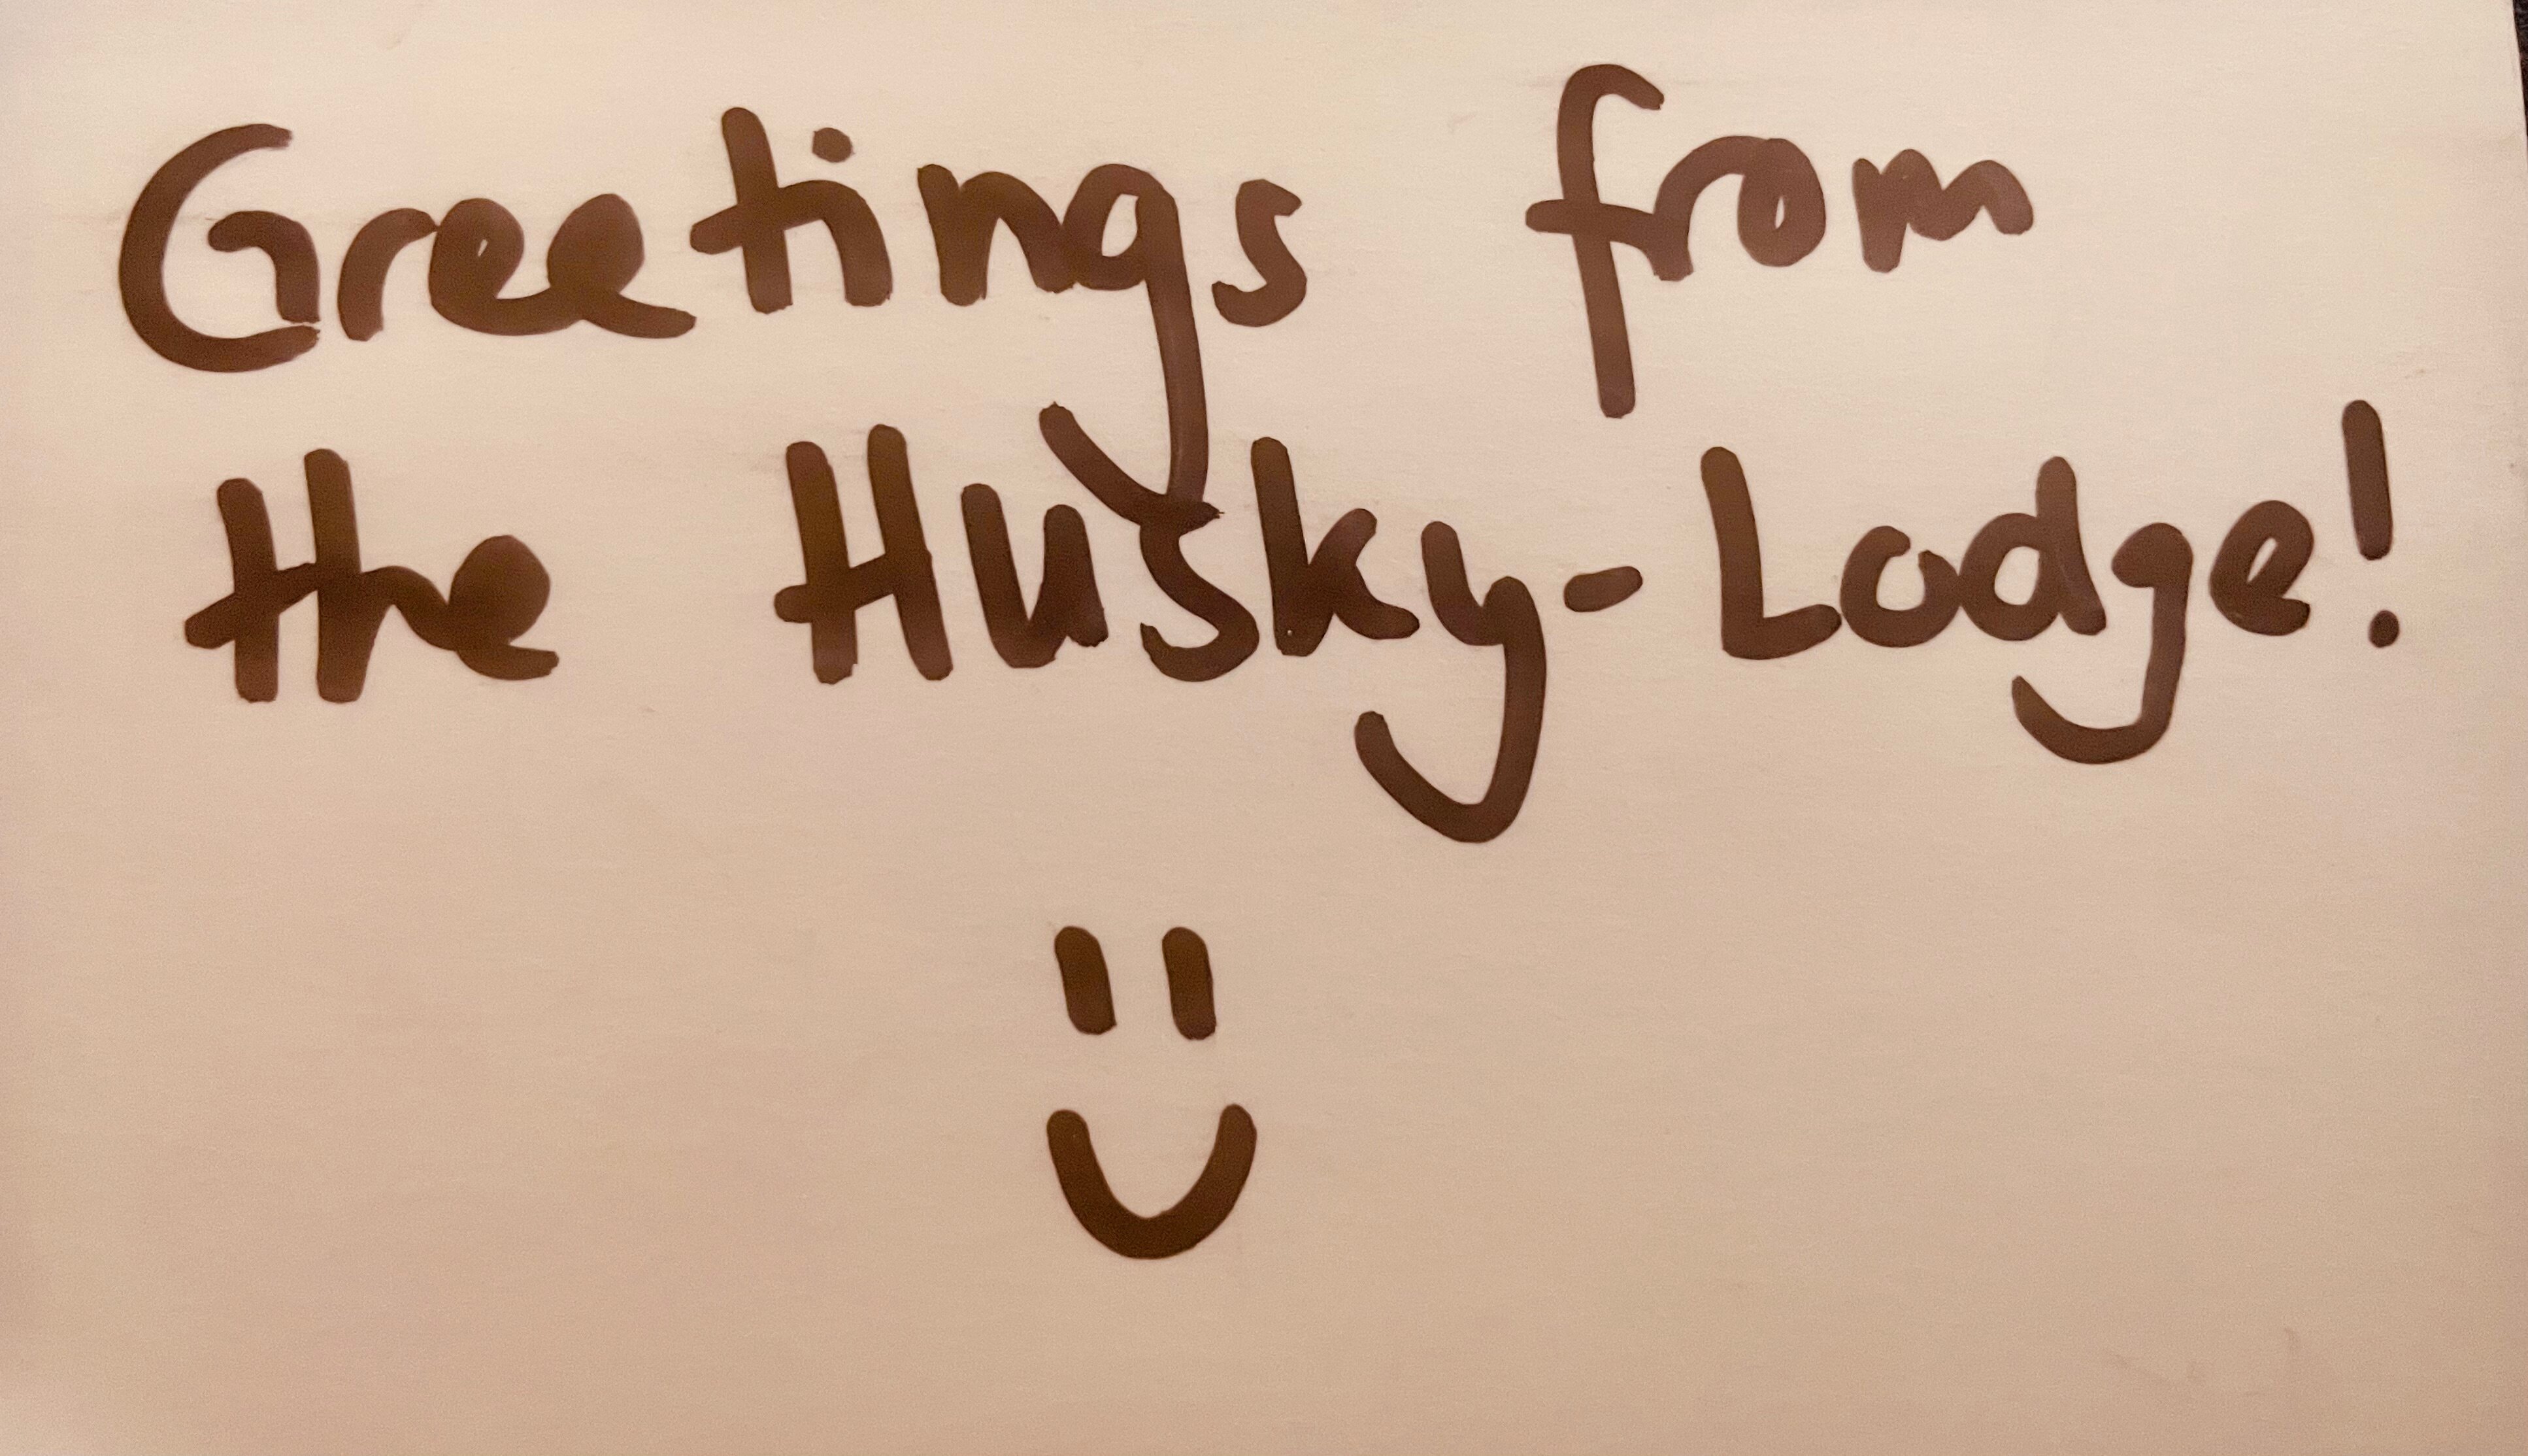 Greetings from
the Husky-Lodge!